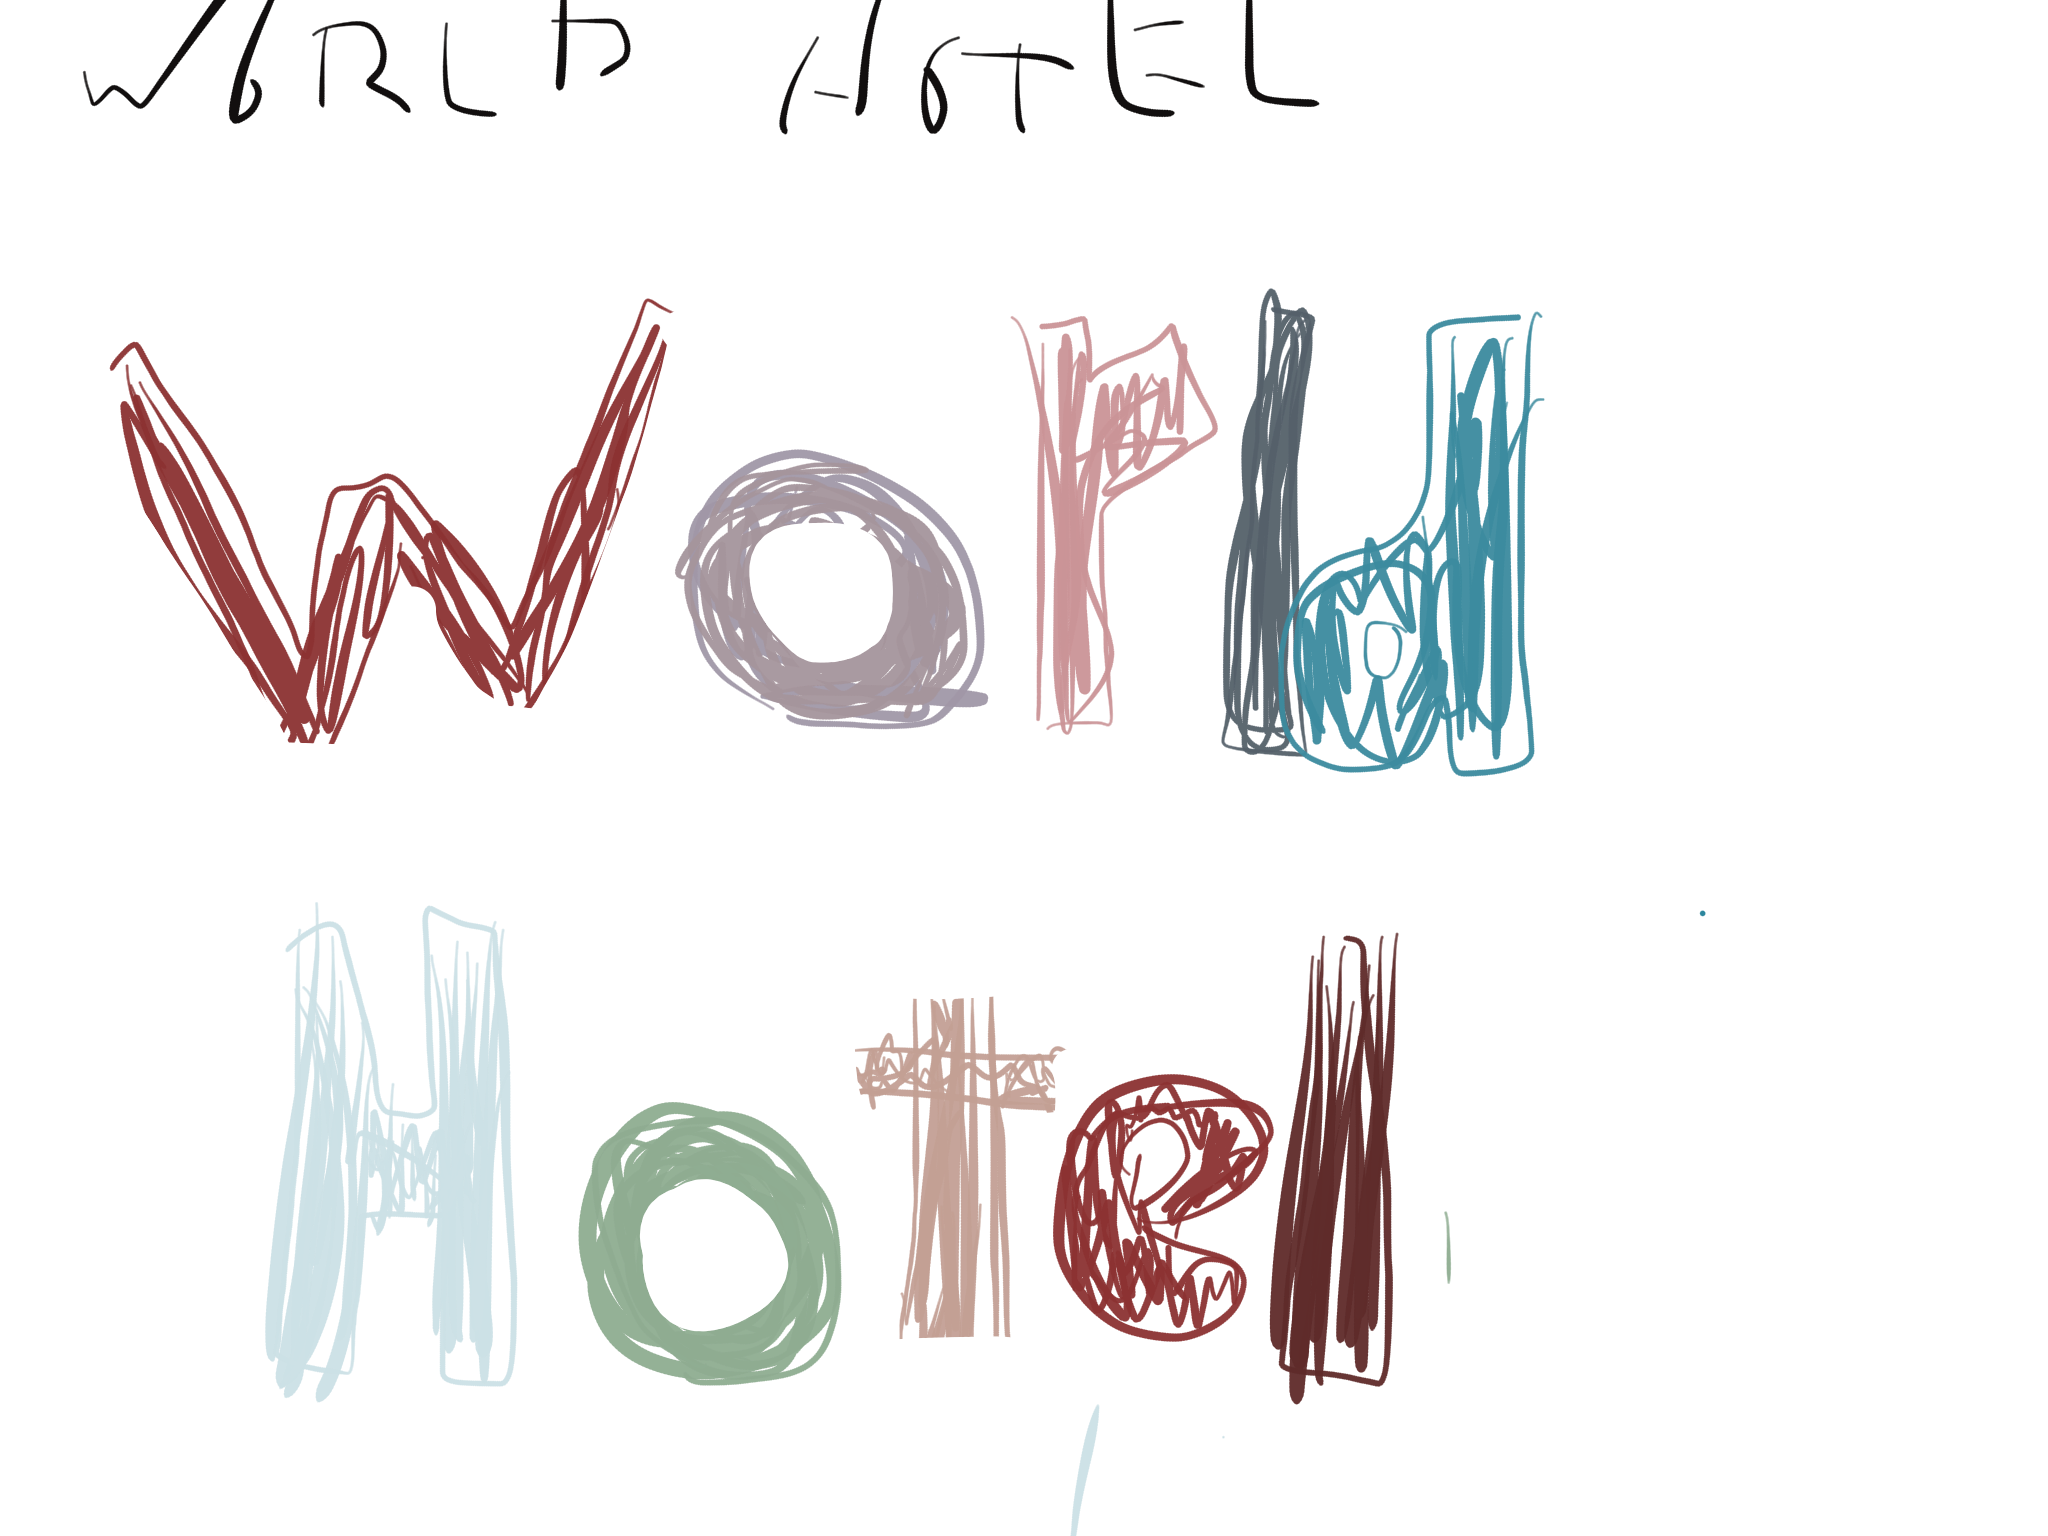 WORLD HOTEL
World
Hotel